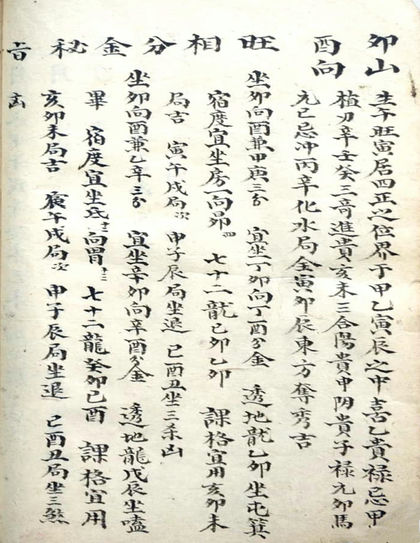 卯山
酉向
旺相分金秘旨
生午旺寅居四正之位界于甲乙寅辰之中喜乙貴禄忌甲
植刃辛壬癸三奇進貴亥未三合陽貴申阴貴子禄元卯馬
元巳忌冲丙辛化水局全寅卯辰東方奪秀吉
坐卯向酉兼甲庚三分 宜坐丁卯向丁酉分金 透地龍乙卯坐屯箕
宿度宜坐房一向昴四 七十二龍己卯乙卯 課格宜用亥卯未
局吉 寅午戌局次 申子辰局坐退 巳酉丑坐三杀凶
坐卯向酉兼乙辛三分 宜坐辛卯向辛酉分金 透地龍戊辰坐嗑
畢 宿度宜坐氐向胃 七十二龍癸卯己酉 課格宜用
亥卯未局吉 寅午戌局次 申子辰局坐退 巳酉丑局坐三煞
凶